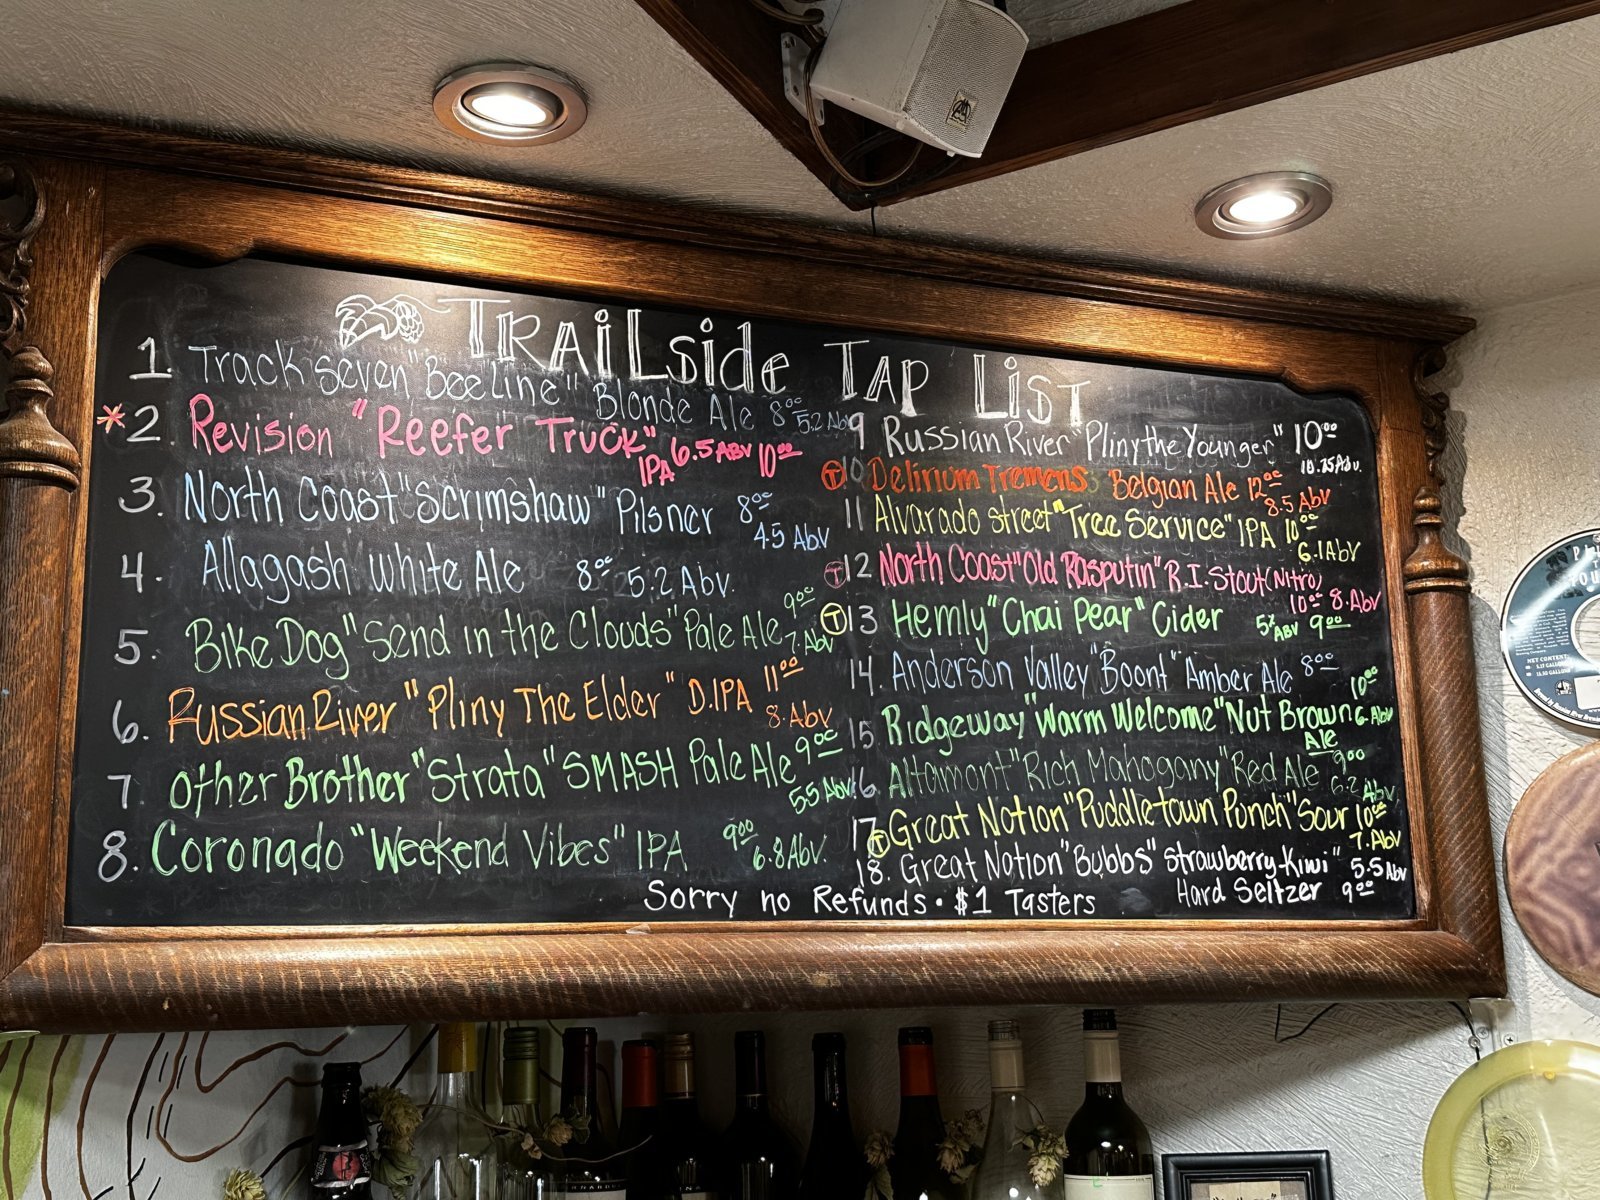 Trailside Tap List
1. Track Seven "Bee Line" Blonde Ale 8⁰⁰ 5.2 Abv
*2. Revision "Reefer Truck" IPA 6.5 ABV 10⁰⁰
3. North Coast "Scrimshaw" Pilsner 8⁰⁰ 4.5 Abv
4. Allagash White Ale 8⁰⁰ 5.2 Abv.
5. Bike Dog "Send in the Clouds" Pale Ale 9⁰⁰ 7. Abv
6. Russian River "Pliny The Elder" D.IPA 11⁰⁰ 8. Abv
7. Other Brother "Strata" SMASH Pale Ale 9⁰⁰ 5.5 Abv
8. Coronado "Weekend Vibes" IPA 9⁰⁰ 6.8 Abv.
9 Russian River "Pliny the Younger" 10⁰⁰ 10.25 Abv.
T 10 Delirium Tremens Belgian Ale 12⁰⁰ 8.5 Abv
11 Alvarado Street "Tree Service" IPA 10⁰⁰ 6.1 Abv
T 12 North Coast "Old Rasputin" R.I. Stout (Nitro) 10⁰⁰ 8. Abv
T 13 Hemly "Chai Pear" Cider 5% ABV 9⁰⁰
14. Anderson Valley "Boont" Amber Ale 8⁰⁰
15 Ridgeway "Warm Welcome" Nut Brown Ale 10⁰⁰ 6. Abv
16. Altamont "Rich Mahogany" Red Ale 9⁰⁰ 6.2 Abv
17 T Great Notion "Puddletown Punch" Sour 10⁰⁰ 7. Abv
18. Great Notion "Bubbs" Strawberry-Kiwi" Hard Seltzer 5.5 Abv 9⁰⁰
Sorry no Refunds • $1 Tasters
NET CONTENTS